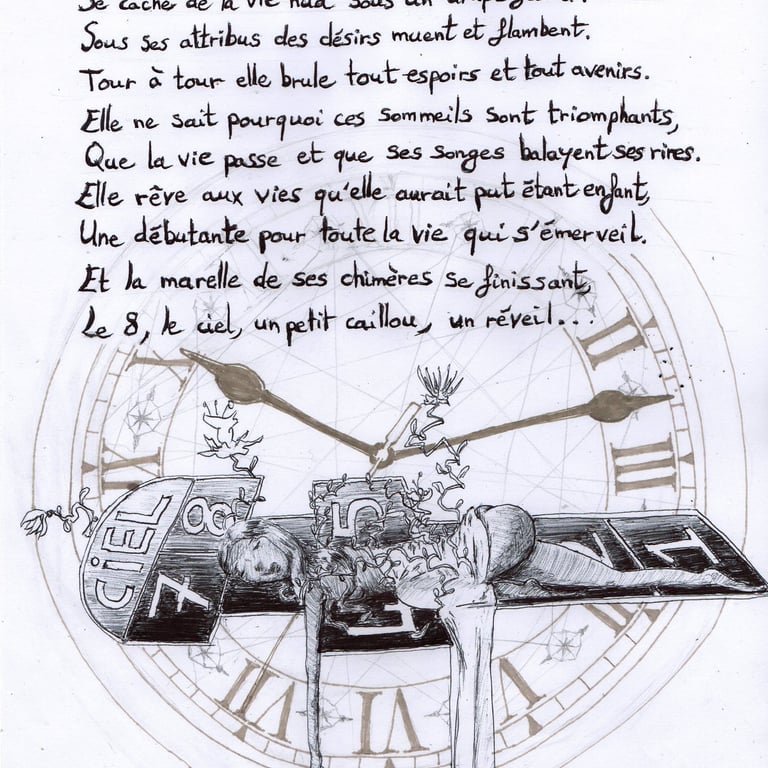 Se cache de la vie nua sous un
Sous ses attribus des désirs muent et flambent.
Tour à tour elle brule tout espoirs et tout avenirs.
Elle ne sait pourquoi ces sommeils sont triomphants,
Que la vie passe et que ses songes balayent ses rires.
Elle rêve aux vies qu'elle aurait put étant enfant,
Une débutante pour toute la vie qui s'émerveil.
Et la marelle de ses chimères se finissant,
Le 8, le ciel, un petit caillou, un réveil...
X
II
IX
III
CIEL
8
5
7
2
1
VII
VI
V